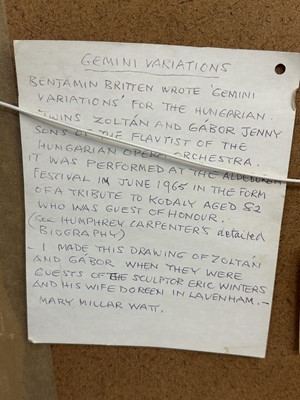 GEMINI VARIATIONS
BENJAMIN BRITTEN WROTE 'GEMINI
VARIATIONS' FOR THE HUNGARIAN
TWINS ZOLTÁN AND GÁBOR JENNY
SONS OF THE FLAVTIST OF THE
HUNGARIAN OPERA ORCHESTRA.
IT WAS PERFORMED AT THE ALDEBURGH
FESTIVAL IN JUNE 1965 IN THE FORM
OF A TRIBUTE TO KODALY AGED 82
WHO WAS GUEST OF HONOUR.
(SEE HUMPHREY CARPENTER'S detailed
BIOGRAPHY)
- I MADE THIS DRAWING OF ZOLTAN
AND GÁBOR WHEN THEY WERE
GUESTS OF THE SCULPTOR ERIC WINTERS
AND HIS WIFE DOREEN IN LAVENHAM. -
MARY MILLAR WATT.